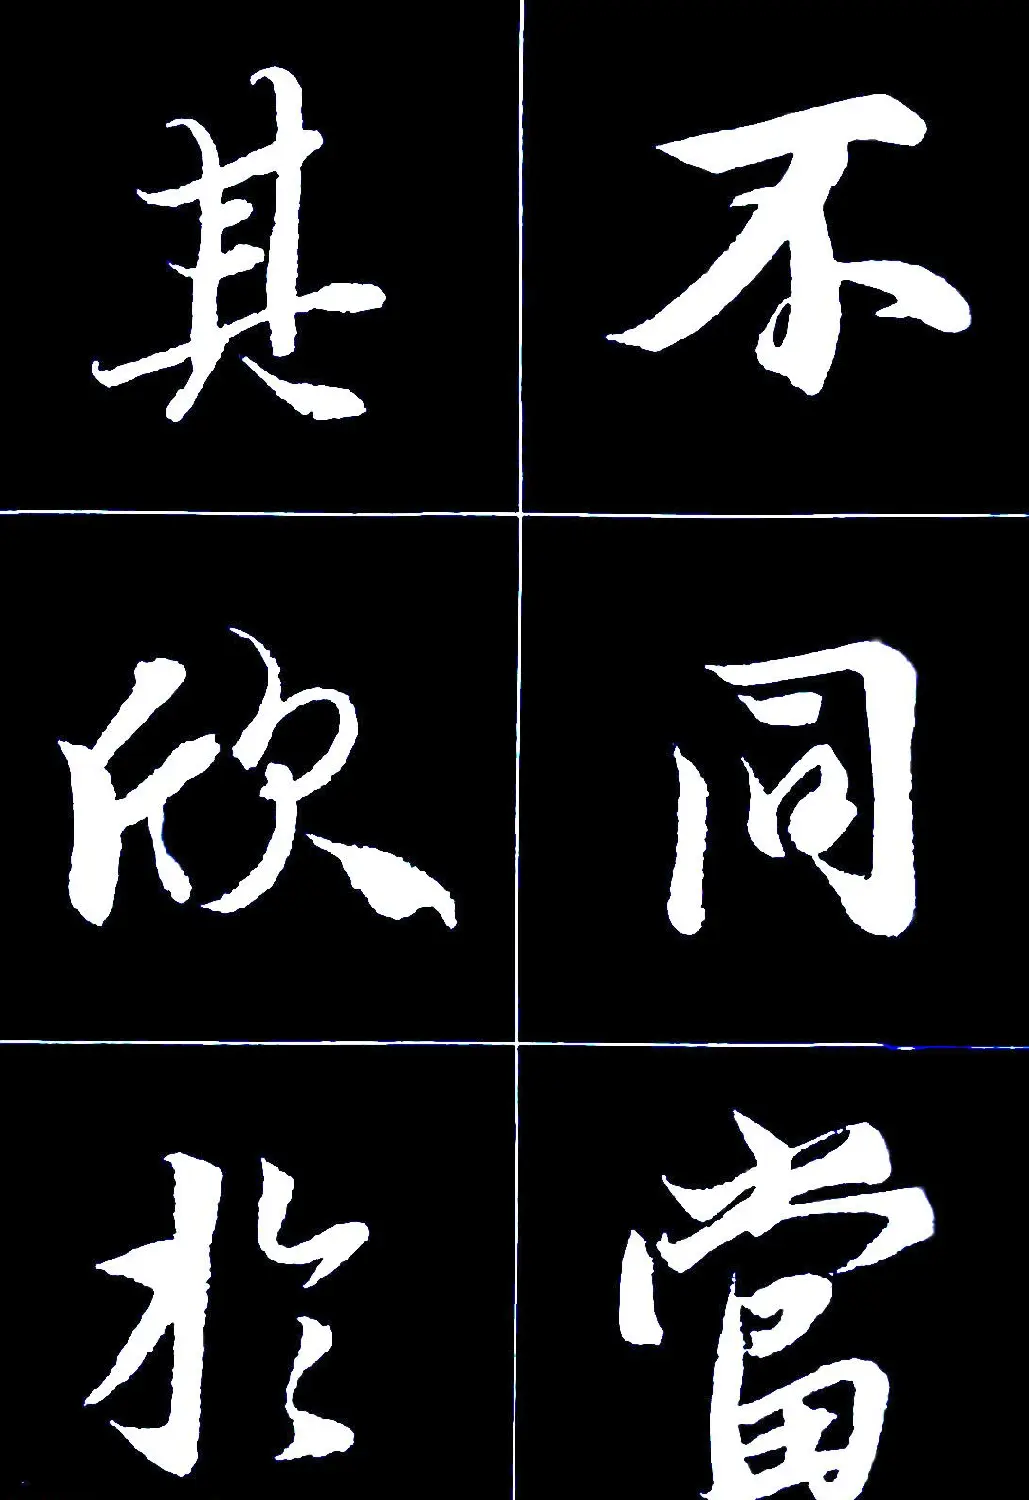 不同當
其欣於